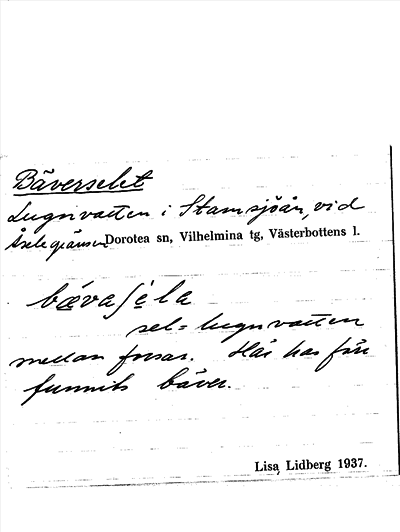 Bäverselet
Lugnvatten i Stamsjöån, vid
Åselegränsen Dorotea sn, Vilhelmina tg, Västerbottens l.
bævaʃela
sel = lugnvatten
mellan forsar. Här har förr
funnits bäver.
Lisa Lidberg 1937.